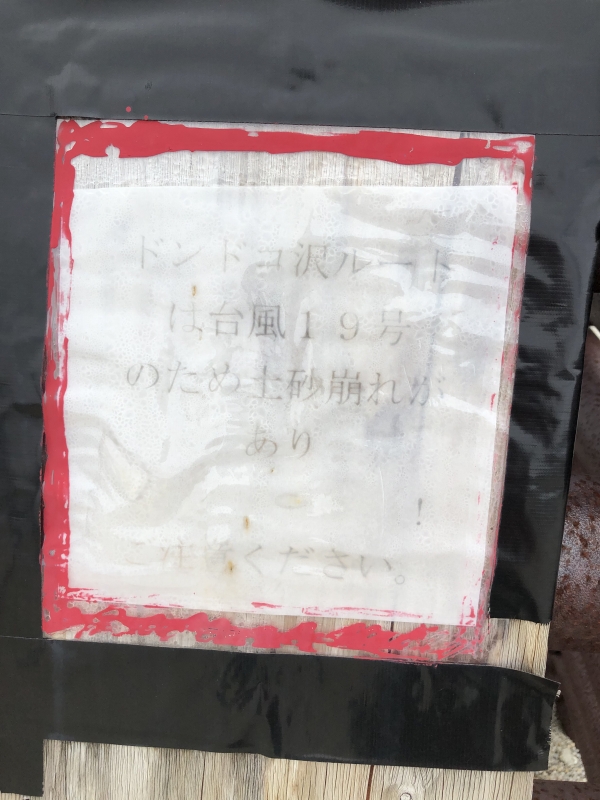 ドンドコ沢ルート
は台風１９号
のため土砂崩れが
あり
！
ご注意ください。